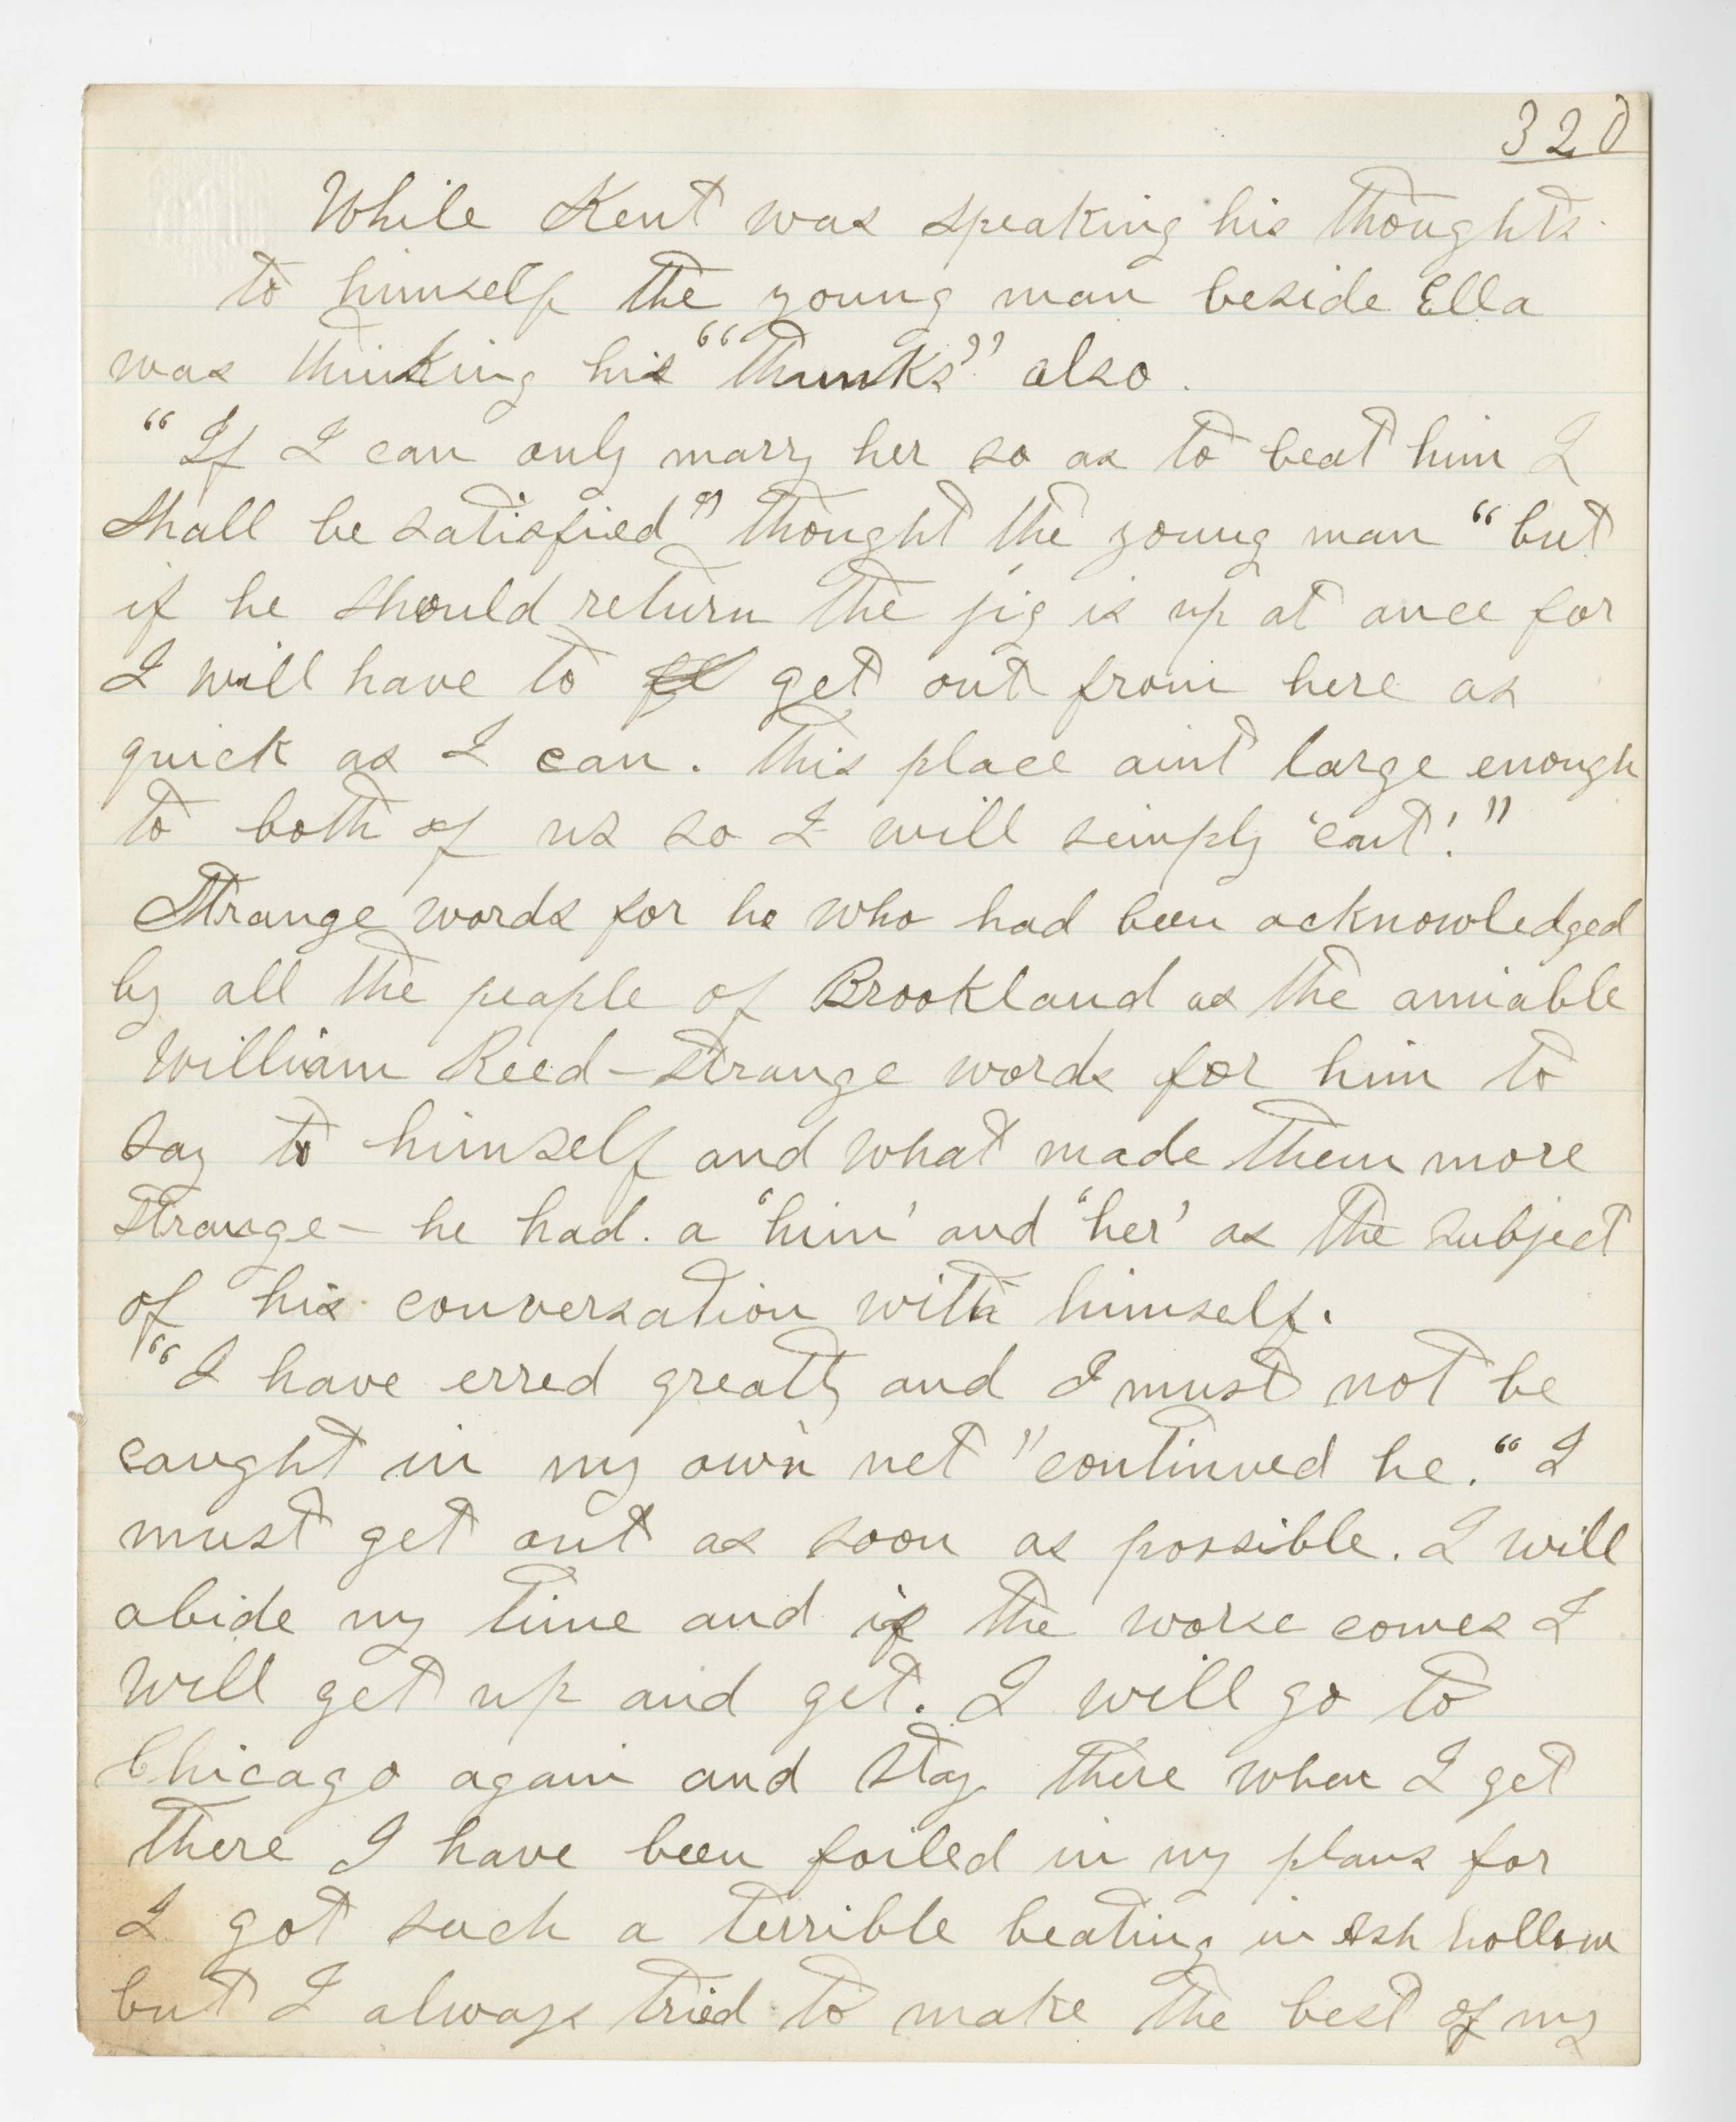 320
While Kent was speaking his thoughts
to himself the young man beside Ella
was thinking his "thunks" also.
"If I can only marry her so as to beat him I
shall be satisfied" thought the young man "but
if he should return the jig is up at once for
I will have to get out from here as
quick as I can. This place aint large enough
to both of us so I will simply 'cut'!"
Strange words for he who had been acknowledged
by all the people of Brookland as the amiable
William Reed – strange words for him to
say to himself and what made them more
strange – he had. a 'him' and 'her' as the subject
of his conversation with himself.
"I have erred greatly and I must not be
caught in my own net" continued he. "I
must get out as soon as possible. I will
abide my time and if the worse comes I
will get up and get. I will go to
Chicago again and stay there when I get
there I have been foiled in my plans for
I got such a terrible beating in Ash hollow
but I always tried to make the best of my